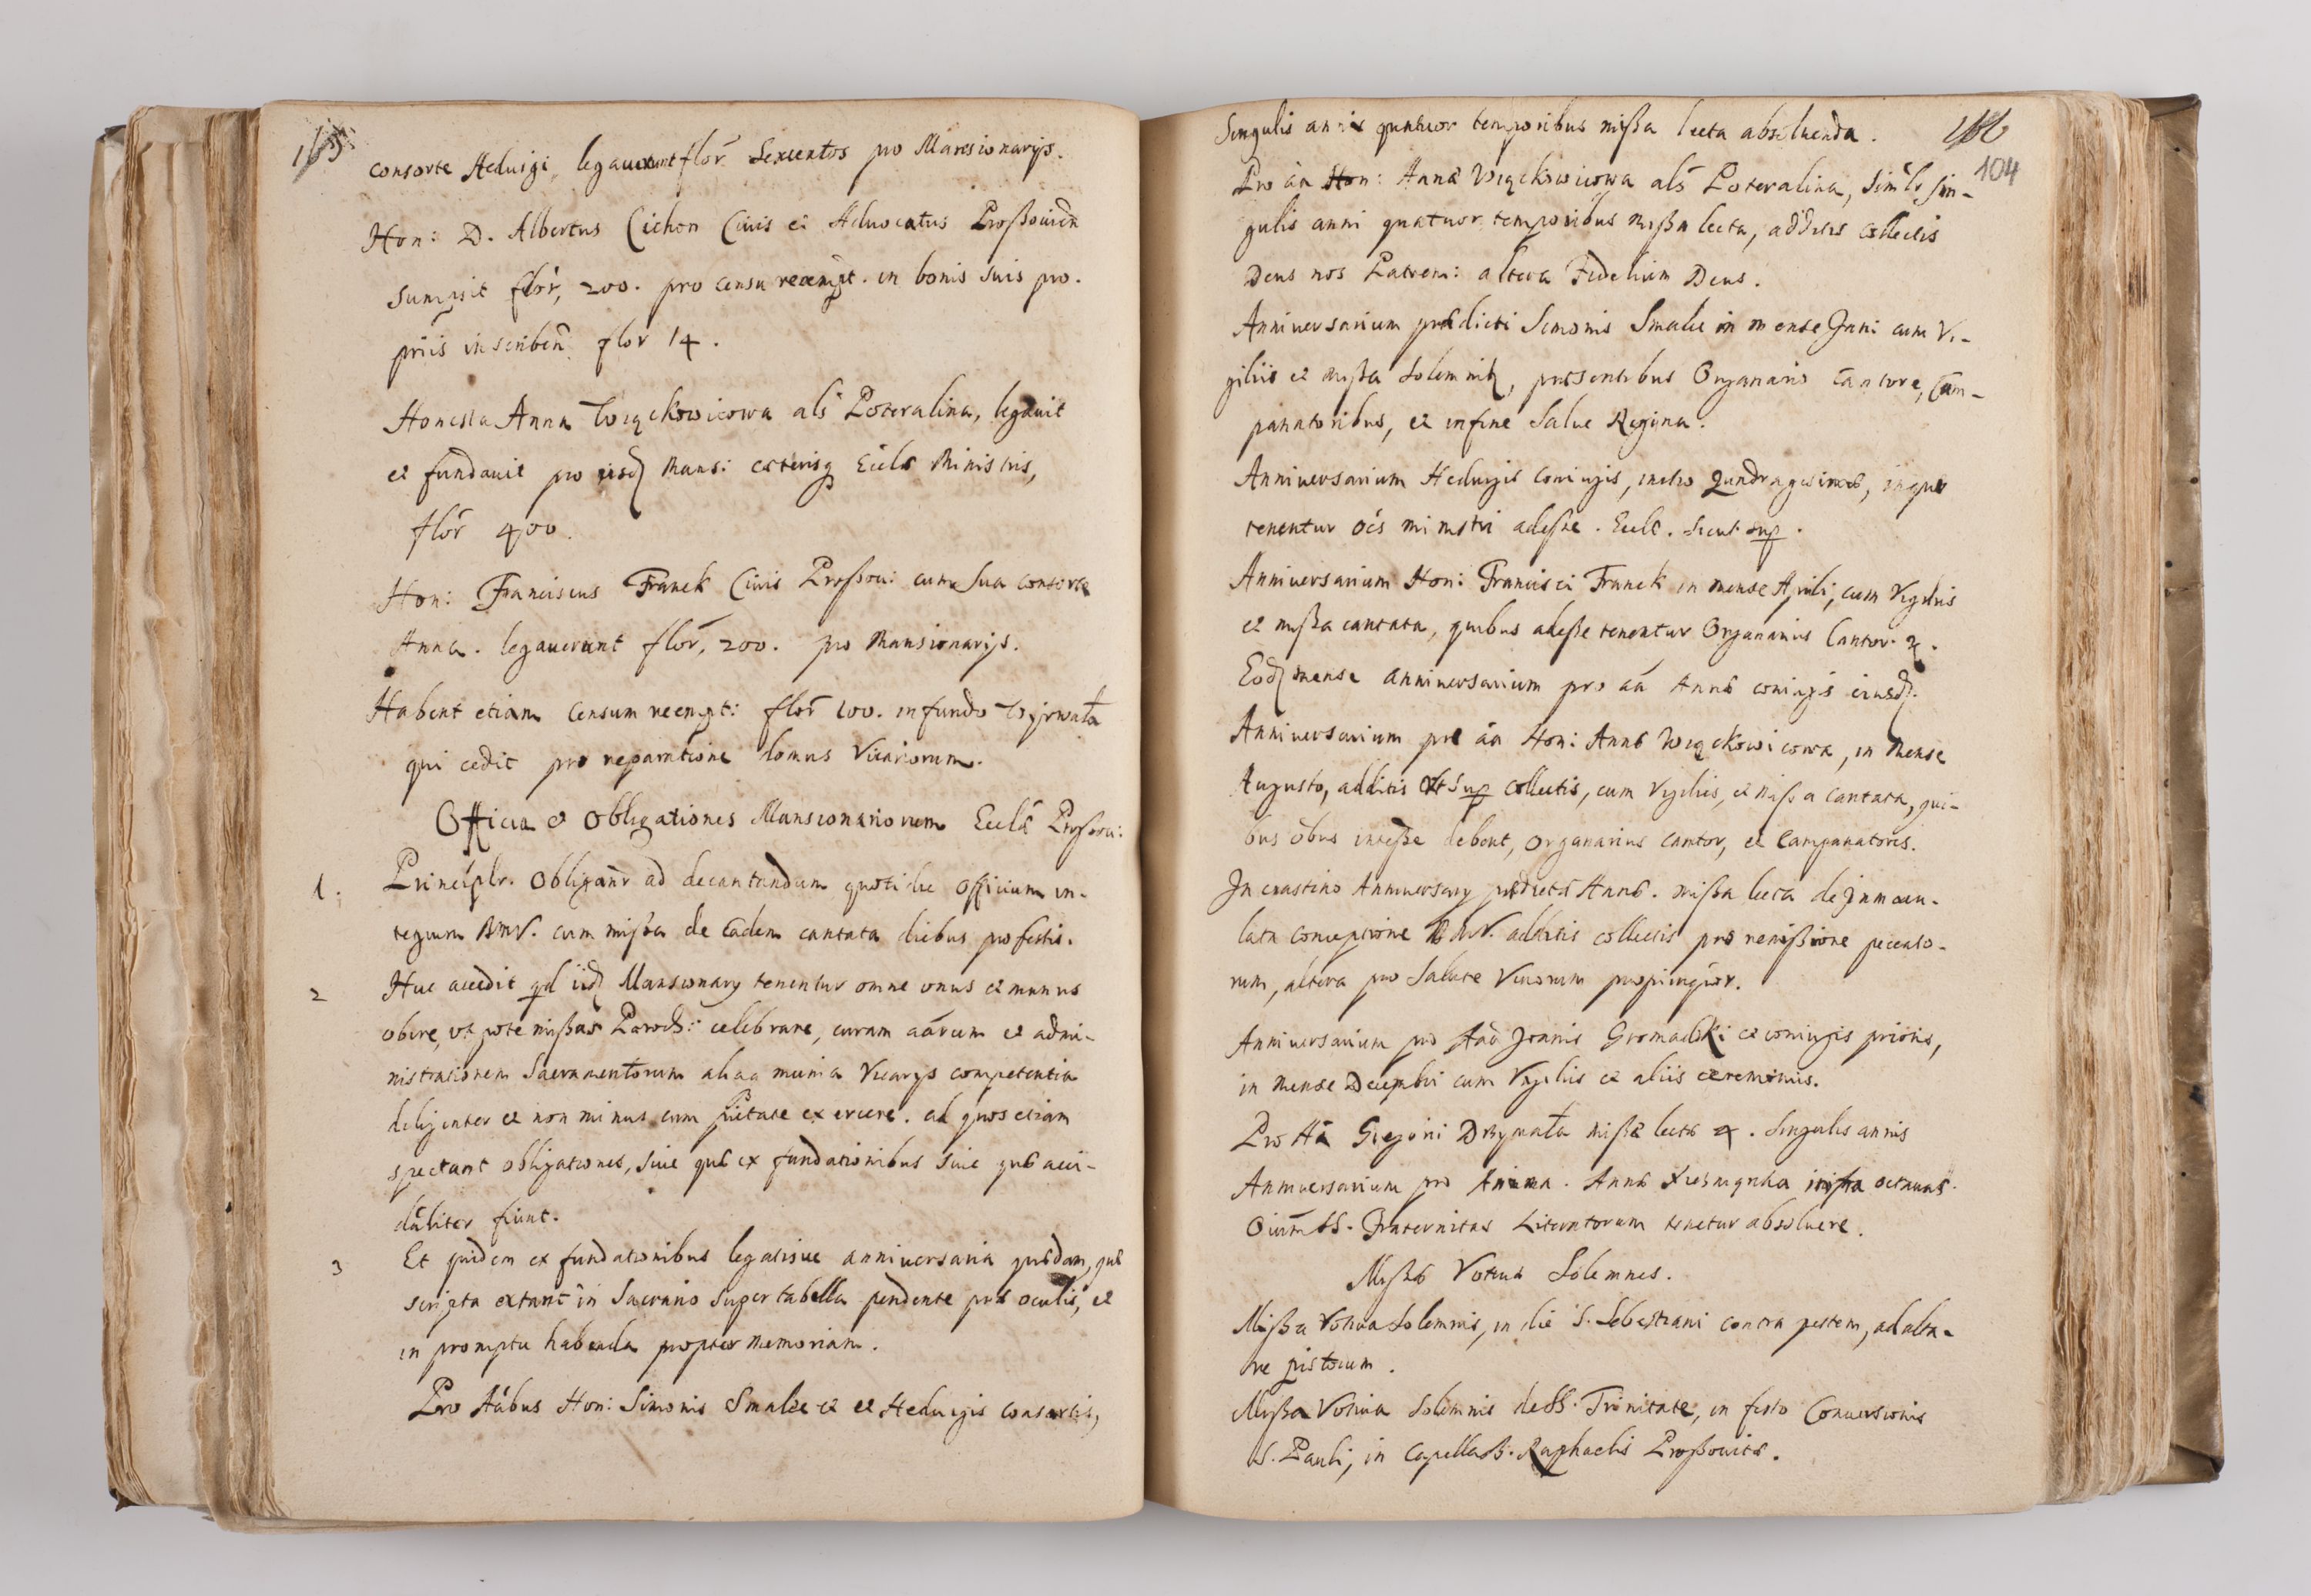 165
consorte Heduigi, legauerunt flor̃ Sexcentos pro Mansionarijs.
Hon: D. Albertus Cichon Ciuis et Aduocatus Proßouien̄
Sumpsit flor̃, 200. pro censu reempt. in bonis suis pro.
priis inscriben̄ flor 14.
Honesta Anna Więckowicowa als̃ Poteralina, legauit
et fundauit pro iisdӡ Mans: caeterisqӡ Eccl̃ae Ministris,
flor̃ 400.
Hon: Franciscus Franek Ciuis Proßoui: cum Sua consorte
Anna. legauerunt flor̃, 200. pro Mansionarijs.
Habent etiam Censum reempt: flor̃ 100. in fundo
qui cedit pro reparatione domus Vicariorum.
Officia et Obligationes Mansionariorum Eccl̃ae Proßoui:
1: Principlr̃. Obligan̄r ad decantandum quotidie officium in-
tegrum BMV. cum mißa de Eadem cantata diebus profestis.
2 Huc accedit qd iidӡ Mansionarij tenentur omne onus et munus
obire, vt pote mißas Paroch: celebrare, curam aãrum et admi-
nistrationem Sacramentorum aliaq munia Vicarijs competentia
diligenter et non minus cum pietate exercere. ad quos etiam
spectant obligationes, siue quae ex fundationibus siue quae acci-
dãliter fiunt.
3 Et quidem ex fundationibus legatisue anniuersaria quaedam, quae
scripta extant in Sacrario super tabella pendente prae oculis, et
in promptu habenda propter memoriam.
Pro Aãbus Hon: Simonis Smalce et Heduigis consortis,
166
104
Singulis annis quatuor temporibus mißa lecta absoluenda.
Pro aã Hon: Annae Więckowicowa als̃ Poteralina, Simlr̃ sin-
gulis anni quatuor temporibus mißa lecta, additis collectis
Deus nos Patrem: altera Fidelium Deus.
Anniuersarium praedicti Simonis Smalce in mense Juni cum Vi-
giliis et mißa Solemni, praesentibus Organario Cantore, Cam-
panatoribus, et in fine Salue Regina.
Anniuersarium Heduigis coniugis, Quadragesimae, in quo
tenentur oẽs ministri adeße. Eccl̃ae. sicut sup.
Anniuersarium Hon: Francisci Franek in mense Aprili, cum Vigiliis
et mißa cantata, quibus adeße tenentur Organarius Cantor. et.
Eodӡ mense anniuersarium pro aã Annae coniugis eiusdӡ.
Anniuersarium pro aã Hon: Annae Więckowicowa, in Mense
Augusto, additis vt sup collectis, cum Vigiliis, et mißa cantata, qui-
bus õbus intereße debent, organarius cantor, et Campanatores.
In crastino Anniuersarij praedictae Annae. mißa lecta de Immacu-
lata Conceptione B M V. additis collectis pro remißione peccato-
rum, altera pro Salute Viuorum propinquor.
Anniuersarium pro Aãa Joannis Gromadski et coniugis prioris,
in mense Decembri cum Vigiliis et aliis ceremoniis.
Pro Aã Gregorii Drzymała mißae lectae 4. Singulis annis
Anniuersarium pro Anima. Annae infra octauas.
Oium̃ SS. Fraternitas Literatorum tenetur absoluere.
Mißae Votiuae Solemnes.
Mißa Votiua Solemnis, in die S. Sebastiani contra pestem, ad alta-
re pistorum.
Mißa Votiua Solemnis de SS. Trinitate, in festo Conuersionis
S. Pauli, in Capella S. Raphaelis Proßouitae.